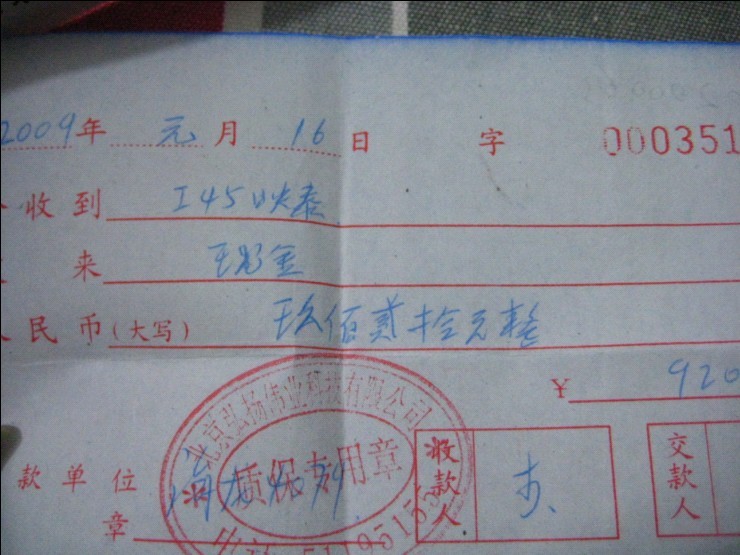 2009年 元月 16日 字 000351
收到 I45映泰
来 现金
民币(大写) 玖佰贰拾元整
¥ 920
北京弘扬伟业科技有限公司
质保专用章
款单位
章
收款人
交款人